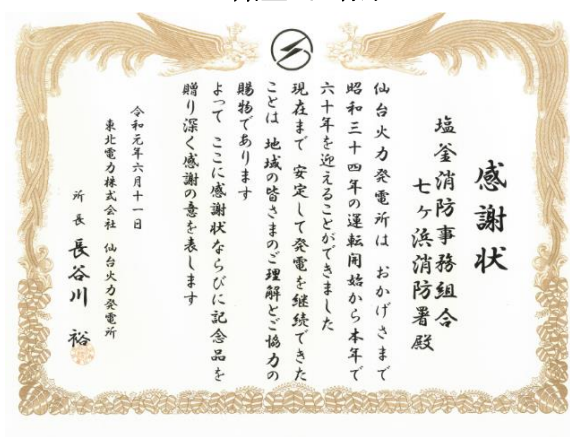 感謝状
塩釜消防事務組合
七ヶ浜消防署殿
仙台火力発電所は おかげさまで
昭和三十四年の運転開始から本年で
六十年を迎えることができました
現在まで 安定して発電を継続できた
ことは 地域の皆さまのご理解とご協力の
賜物であります
よって ここに感謝状ならびに記念品を
贈り深く感謝の意を表します
令和元年六月十一日
東北電力株式会社 仙台火力発電所
所長 長谷川 裕